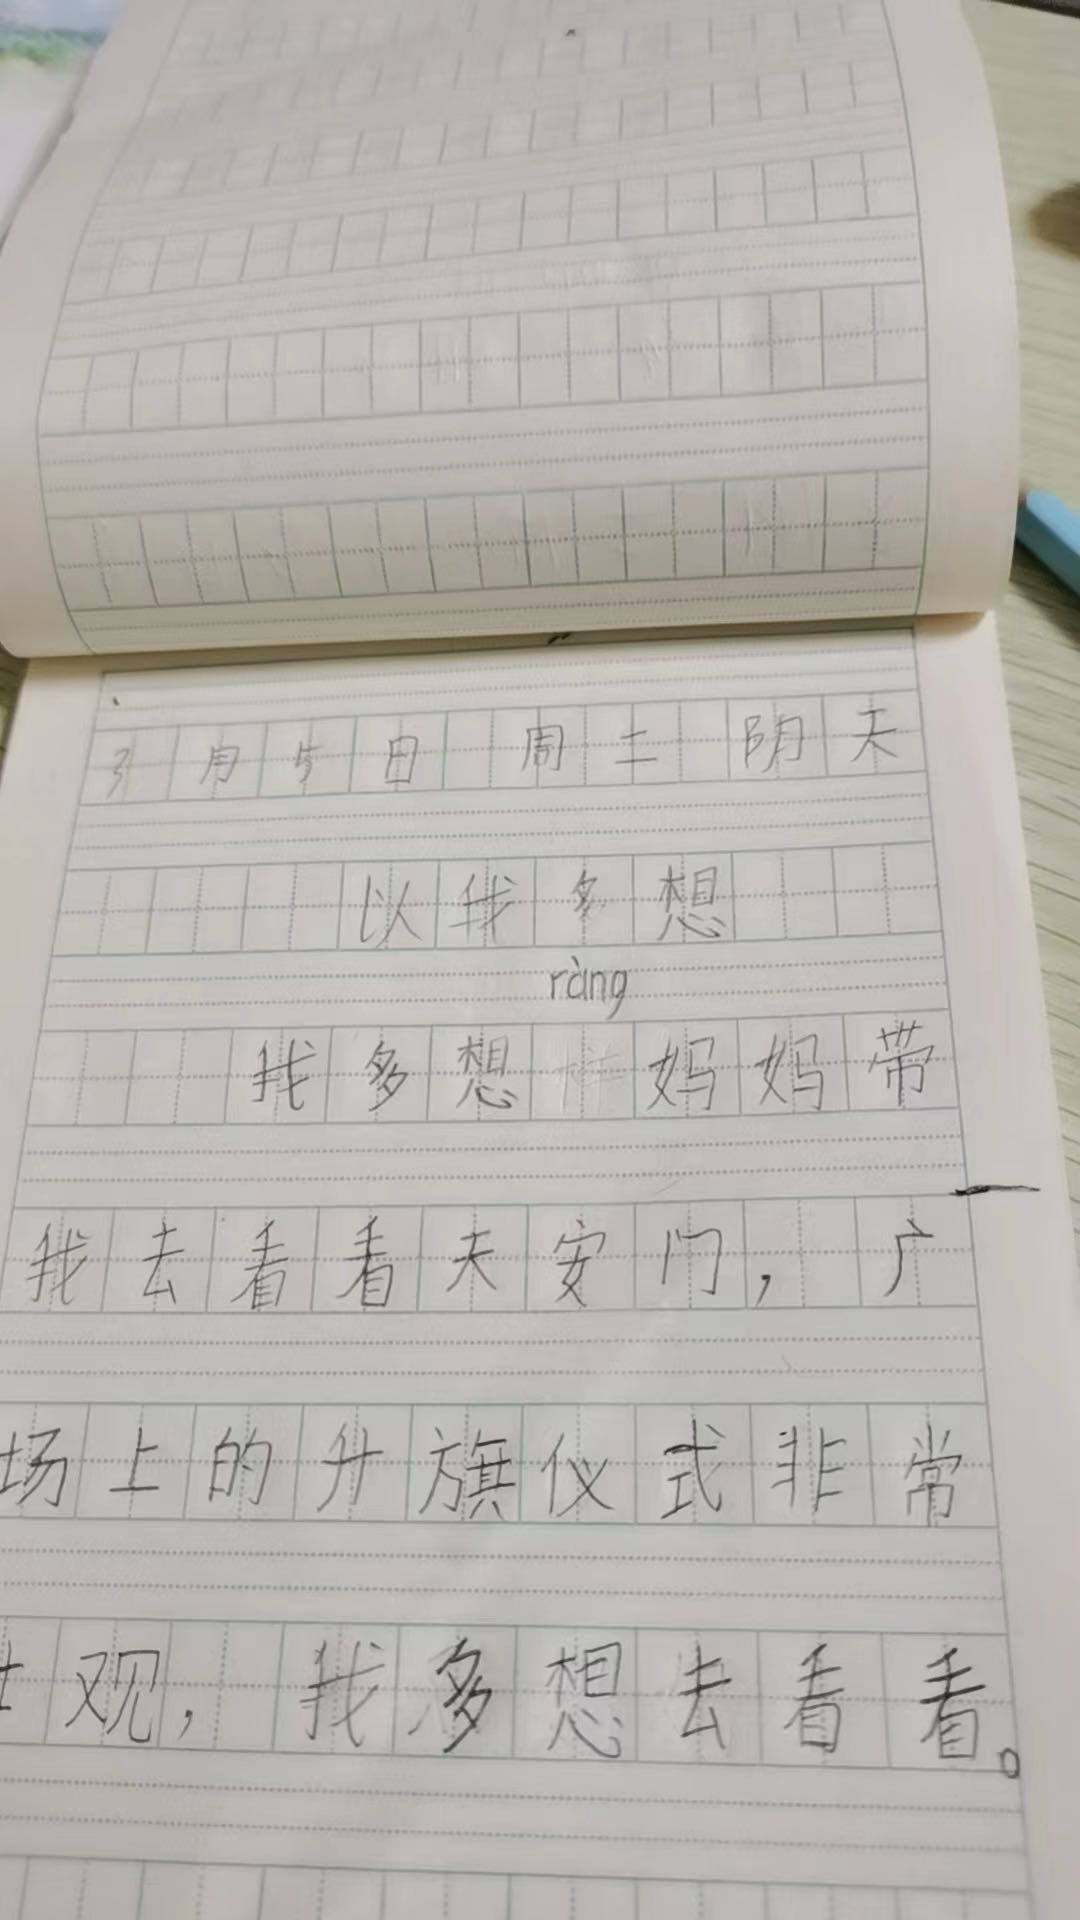 3月5日 周二 阴天
以我多想
ràng
我多想 妈妈带
我去看看天安门，广
场上的升旗仪式非常
壮观，我多想去看看。